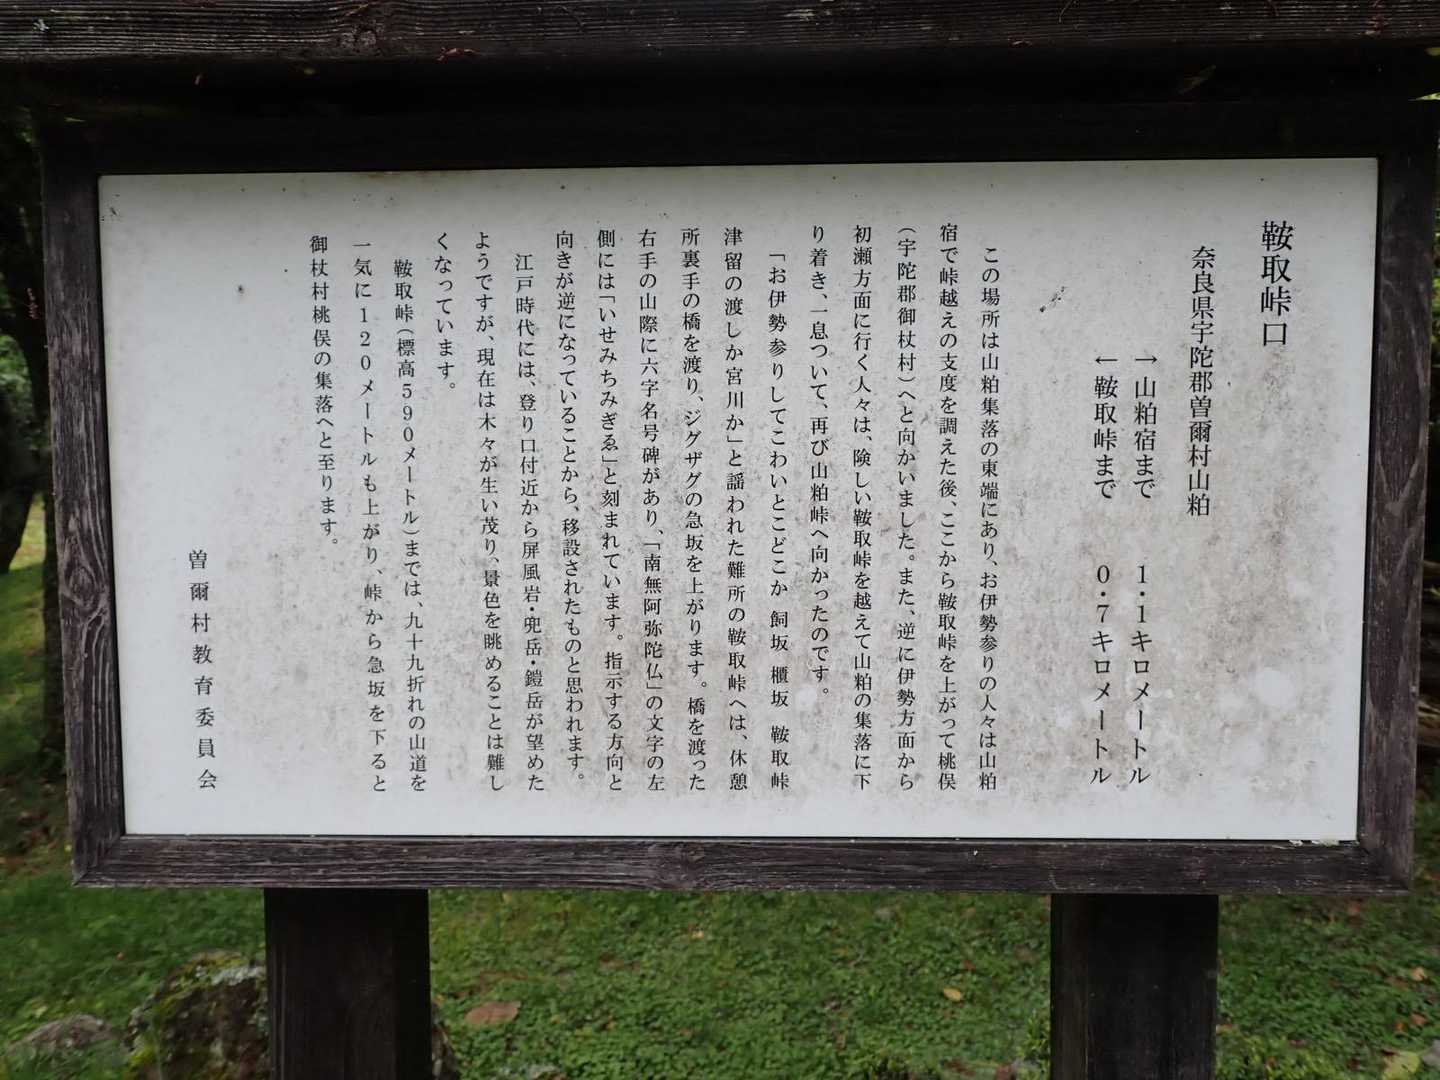 鞍取峠口
奈良県宇陀郡曽爾村山粕
→山粕宿まで　1・1キロメートル
←鞍取峠まで　0・7キロメートル
この場所は山粕集落の東端にあり、お伊勢参りの人々は山粕
宿で峠越えの支度を調えた後、ここから鞍取峠を上がって桃俣
(宇陀郡御杖村)へと向かいました。また、逆に伊勢方面から
初瀬方面に行く人々は、険しい鞍取峠を越えて山粕の集落に下
り着き、一息ついて、再び山粕峠へ向かったのです。
「お伊勢参りしてこわいとこどこか 飼坂 櫃坂 鞍取峠
津留の渡しか宮川か」と謡われた難所の鞍取峠へは、休憩
所裏手の橋を渡り、ジグザグの急坂を上がります。橋を渡った
右手の山際に六字名号碑があり、「南無阿弥陀仏」の文字の左
側には「いせみちみぎゑ」と刻まれています。指示する方向と
向きが逆になっていることから、移設されたものと思われます。
江戸時代には、登り口付近から屏風岩・兜岳・鎧岳が望めた
ようですが、現在は木々が生い茂り、景色を眺めることは難し
くなっています。
鞍取峠(標高590メートル)までは、九十九折れの山道を
一気に120メートルも上がり、峠から急坂を下ると
御杖村桃俣の集落へと至ります。
曽爾村教育委員会